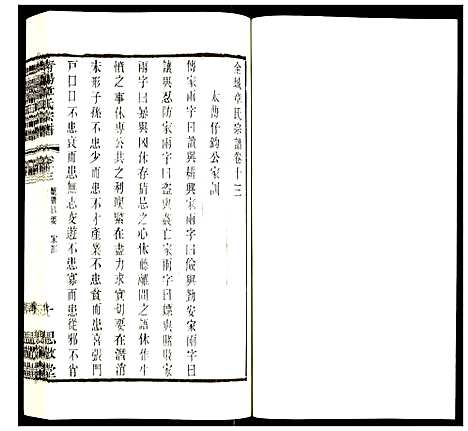 全城章氏宗譜卷十三
太傅仔鈞公家訓
傳家兩字曰讀與耕興家兩字曰儉與勤安家兩字曰
讓與忍防家兩字曰盜與姦亡家兩字曰嫖與賭敗家
兩字曰暴與凶休存猜忌之心休聽離間之語休作生
憤之事休專公共之利喫緊在盡力求實切要在潛消
未形子孫不患少而患不才產業不患貧而患喜張門
戶不患衰而患無志交遊不患寡而患從邪不肖
章氏宗譜
家訓